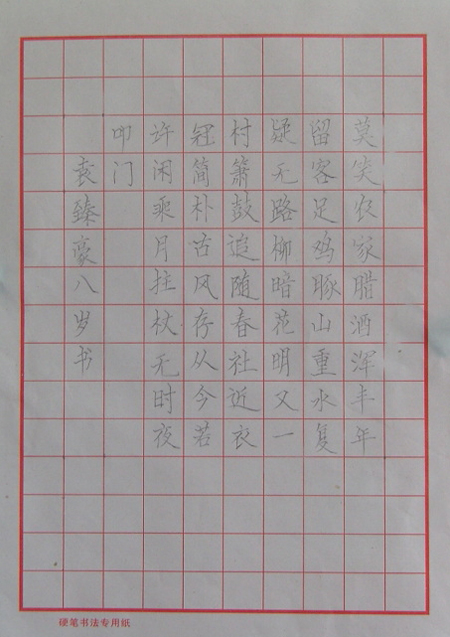 莫笑农家腊酒浑丰年
留客足鸡豚山重水复
疑无路柳暗花明又一
村箫鼓追随春社近衣
冠简朴古风存从今若
许闲乘月拄杖无时夜
叩门
袁臻豪八岁书
硬笔书法专用纸